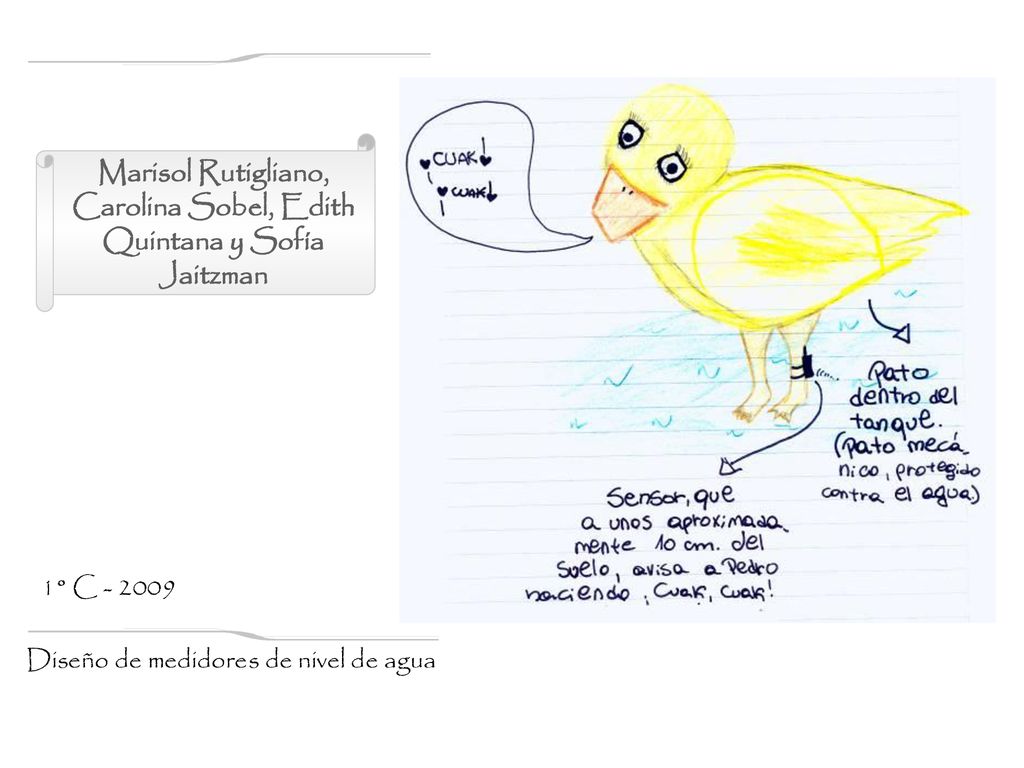 Marisol Rutigliano,
Carolina Sobel, Edith
Quintana y Sofía
Jaitzman
¡CUAK!
¡CUAK!
Pato
dentro del
tanque.
(pato mecá-
nico, protegido
contra el agua)
Sensor, que
a unos aproximada-
mente 10 cm. del
suelo, avisa a Pedro
haciendo ¡Cuak, Cuak!
1º C - 2009
Diseño de medidores de nivel de agua